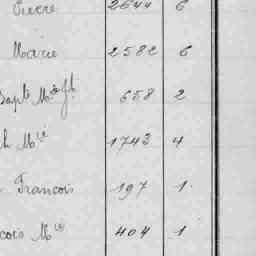 Pierre 2644 6
Marie 2582 6
Bapte Mce fs 658 2
h Mie 1743 4
François 197 1
çois Mie 404 1